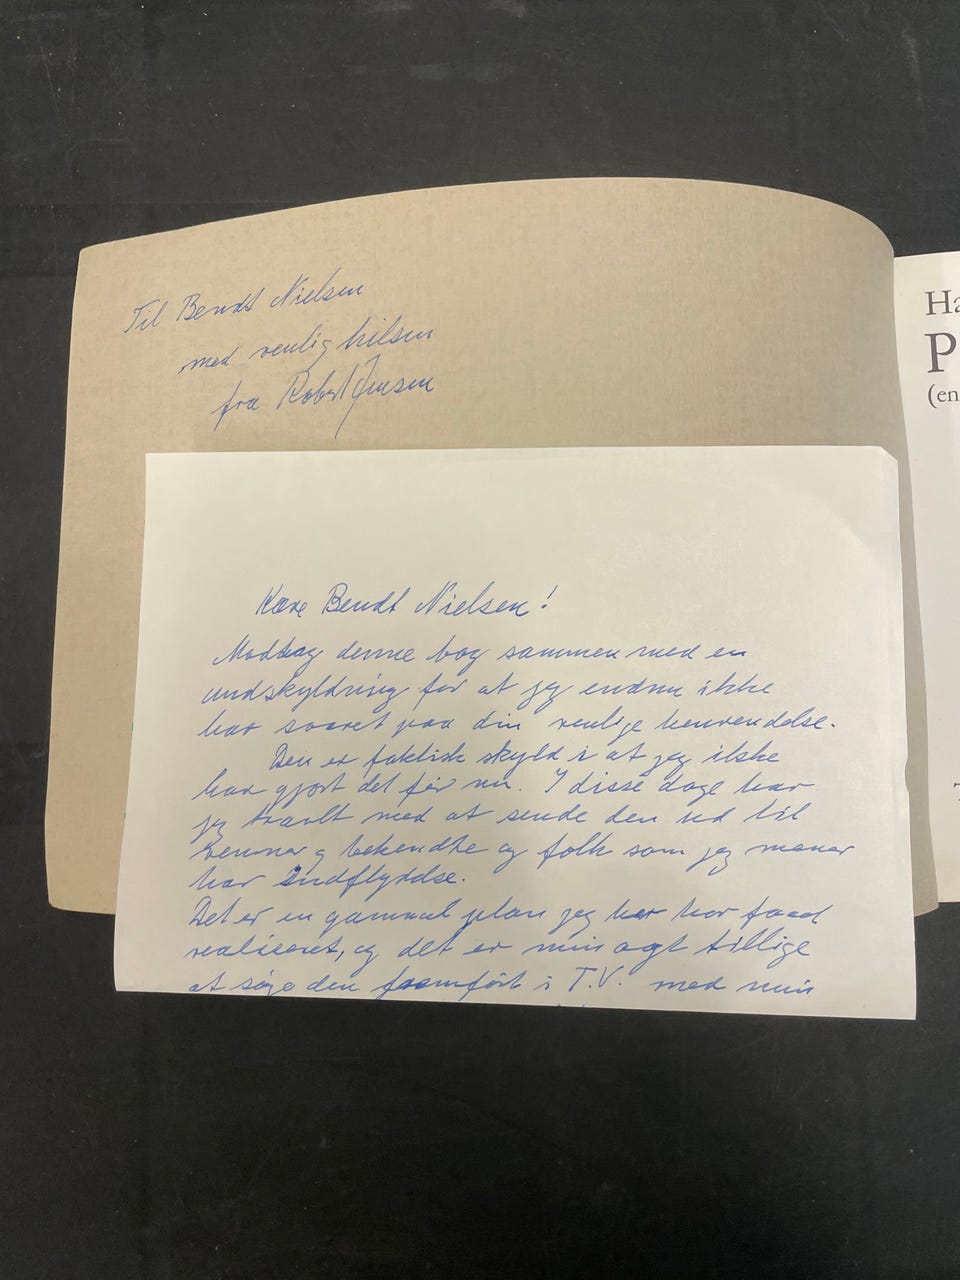 Til Bendt Nielsen
med venlig hilsen
fra Robert Jensen
Kære Bendt Nielsen!
Modtag denne bog sammen med en
undskyldning for at jeg endnu ikke
har svaret paa din venlige henvendelse.
Den er faktisk skyld i at jeg ikke
har gjort det før nu. I disse dage har
jeg travlt med at sende den ud til
venner og bekendte og folk som jeg mener
har indflydelse.
Det er en gammel plan jeg her har faaet
realiseret, og det er min agt tillige
at søge den fremført i T.V. med min
Ha
P
(en